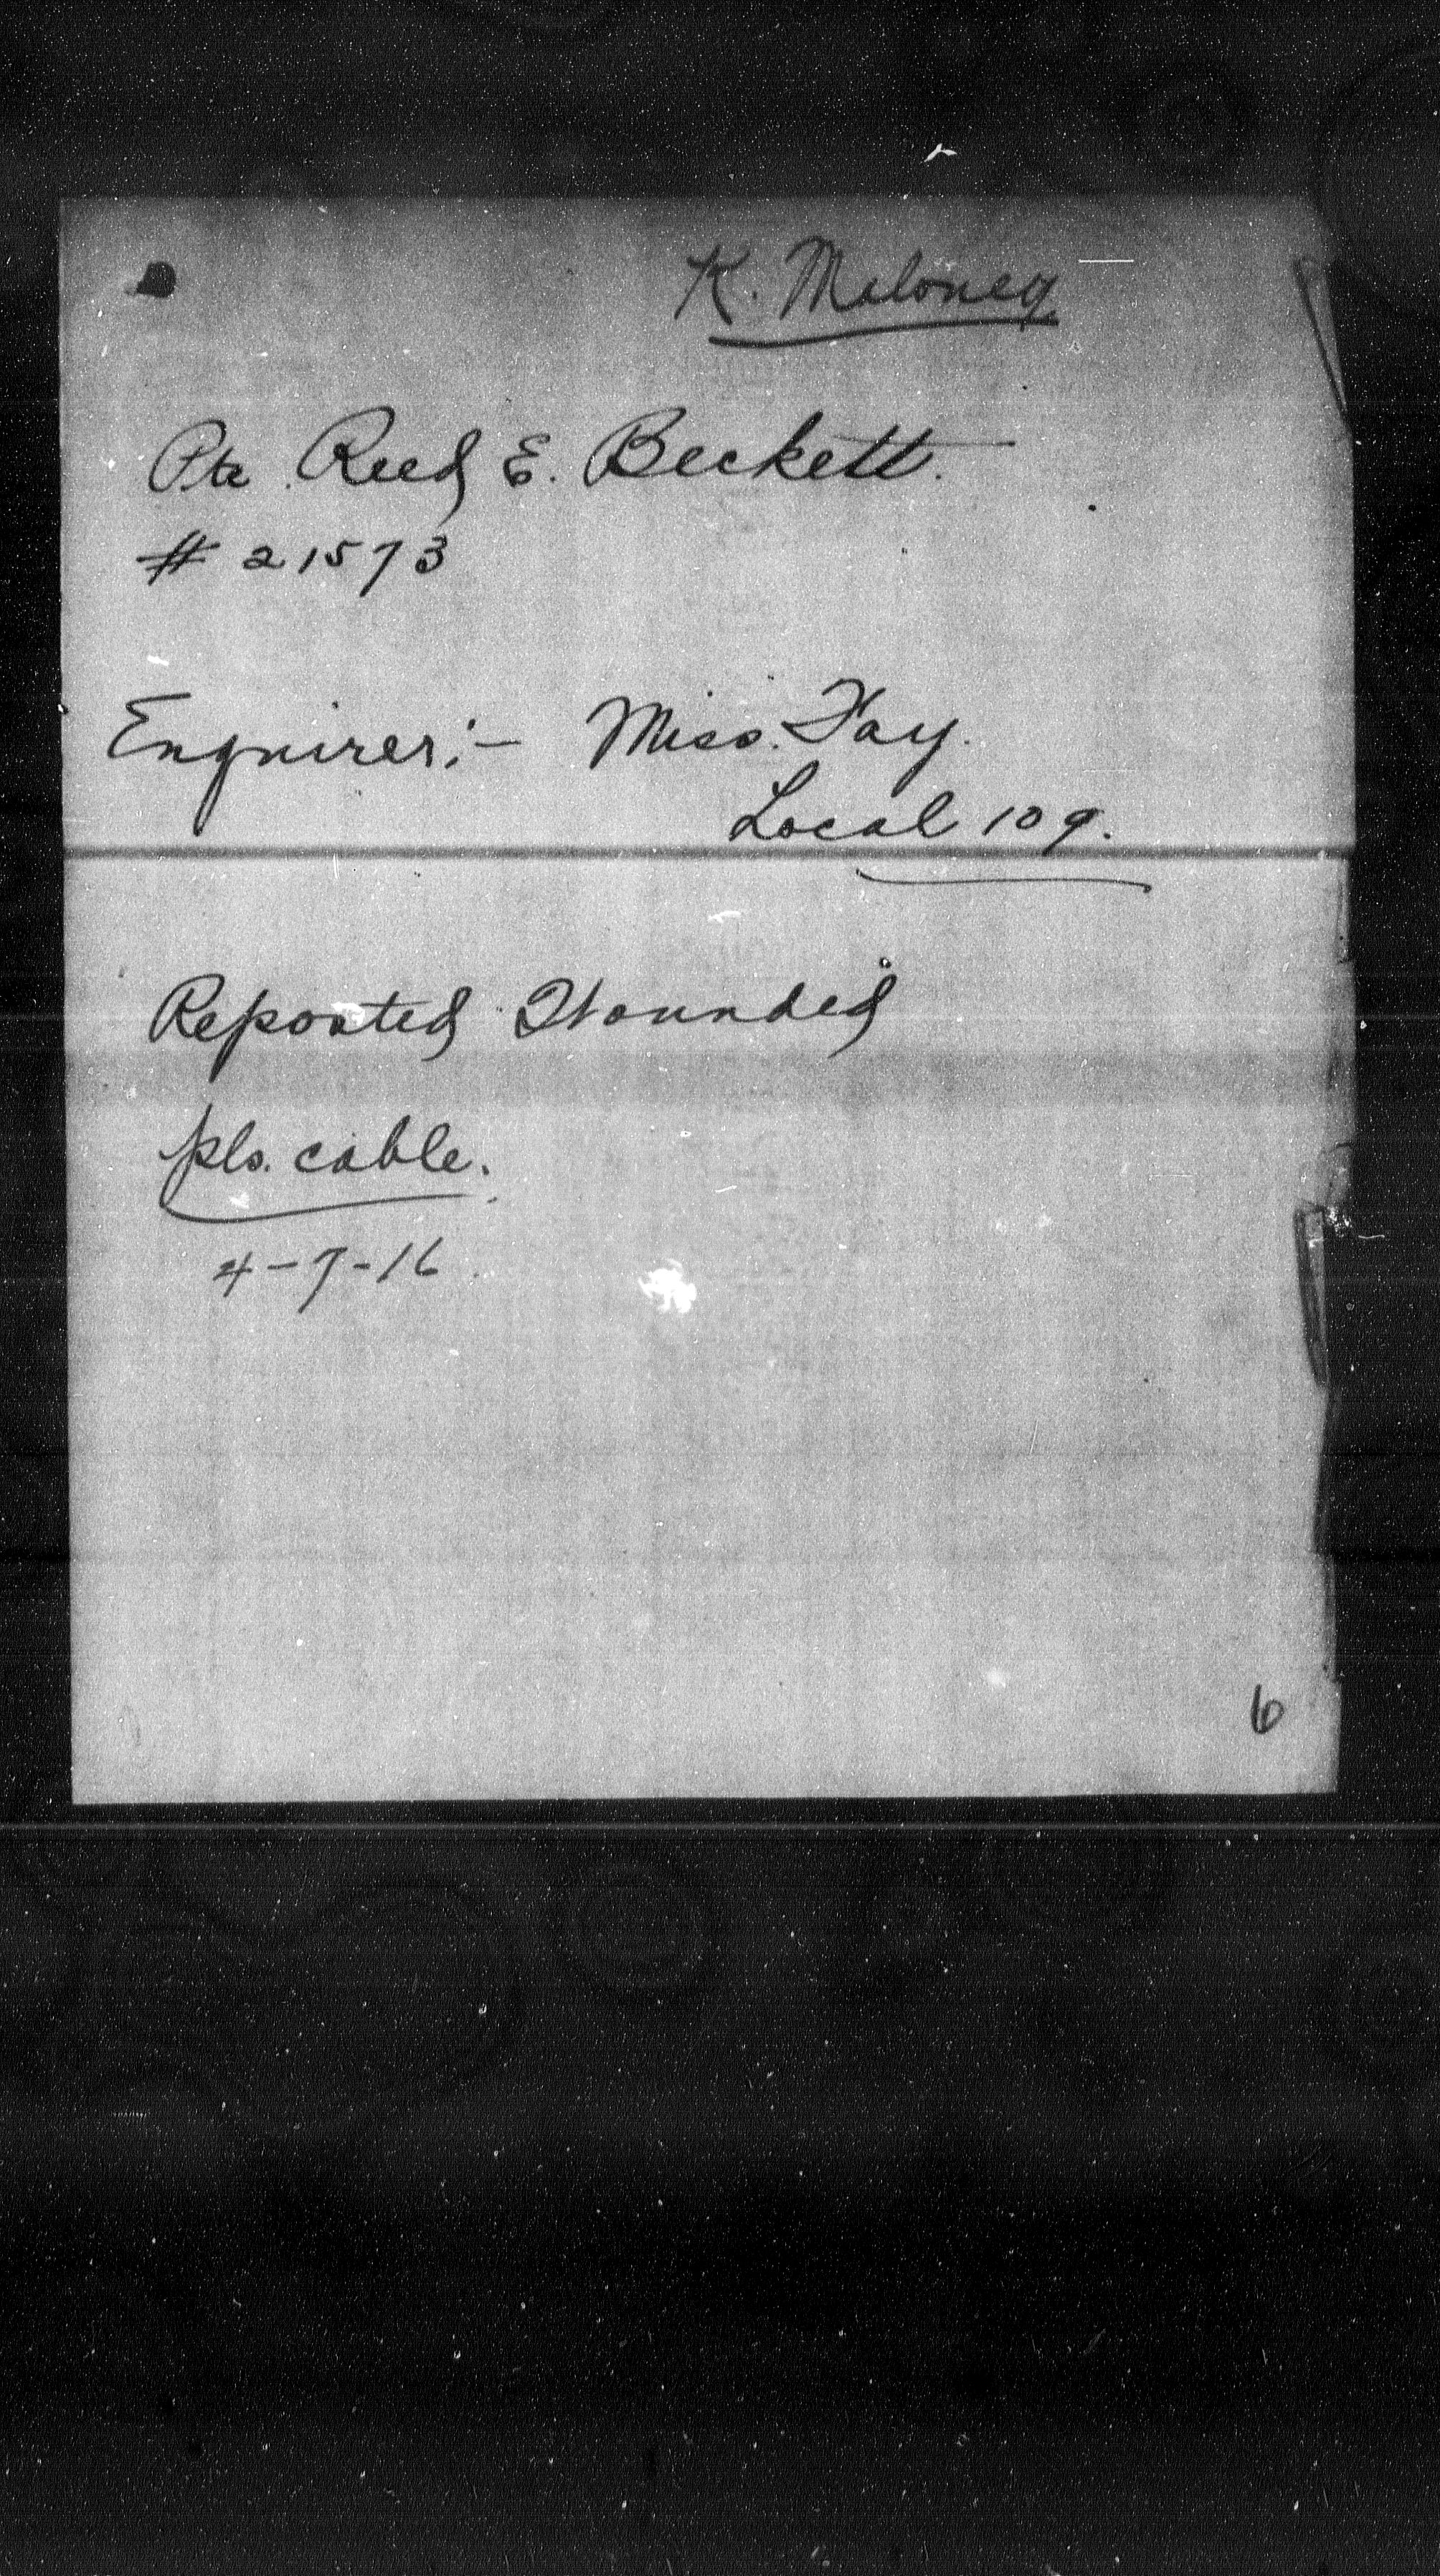 K. Maloney
Pte. Reed E. Beckett.
# 21573
Enquirer:- Miss. Fay.
Local 109.
Reported Wounded
pls. cable.
4-7-16
6